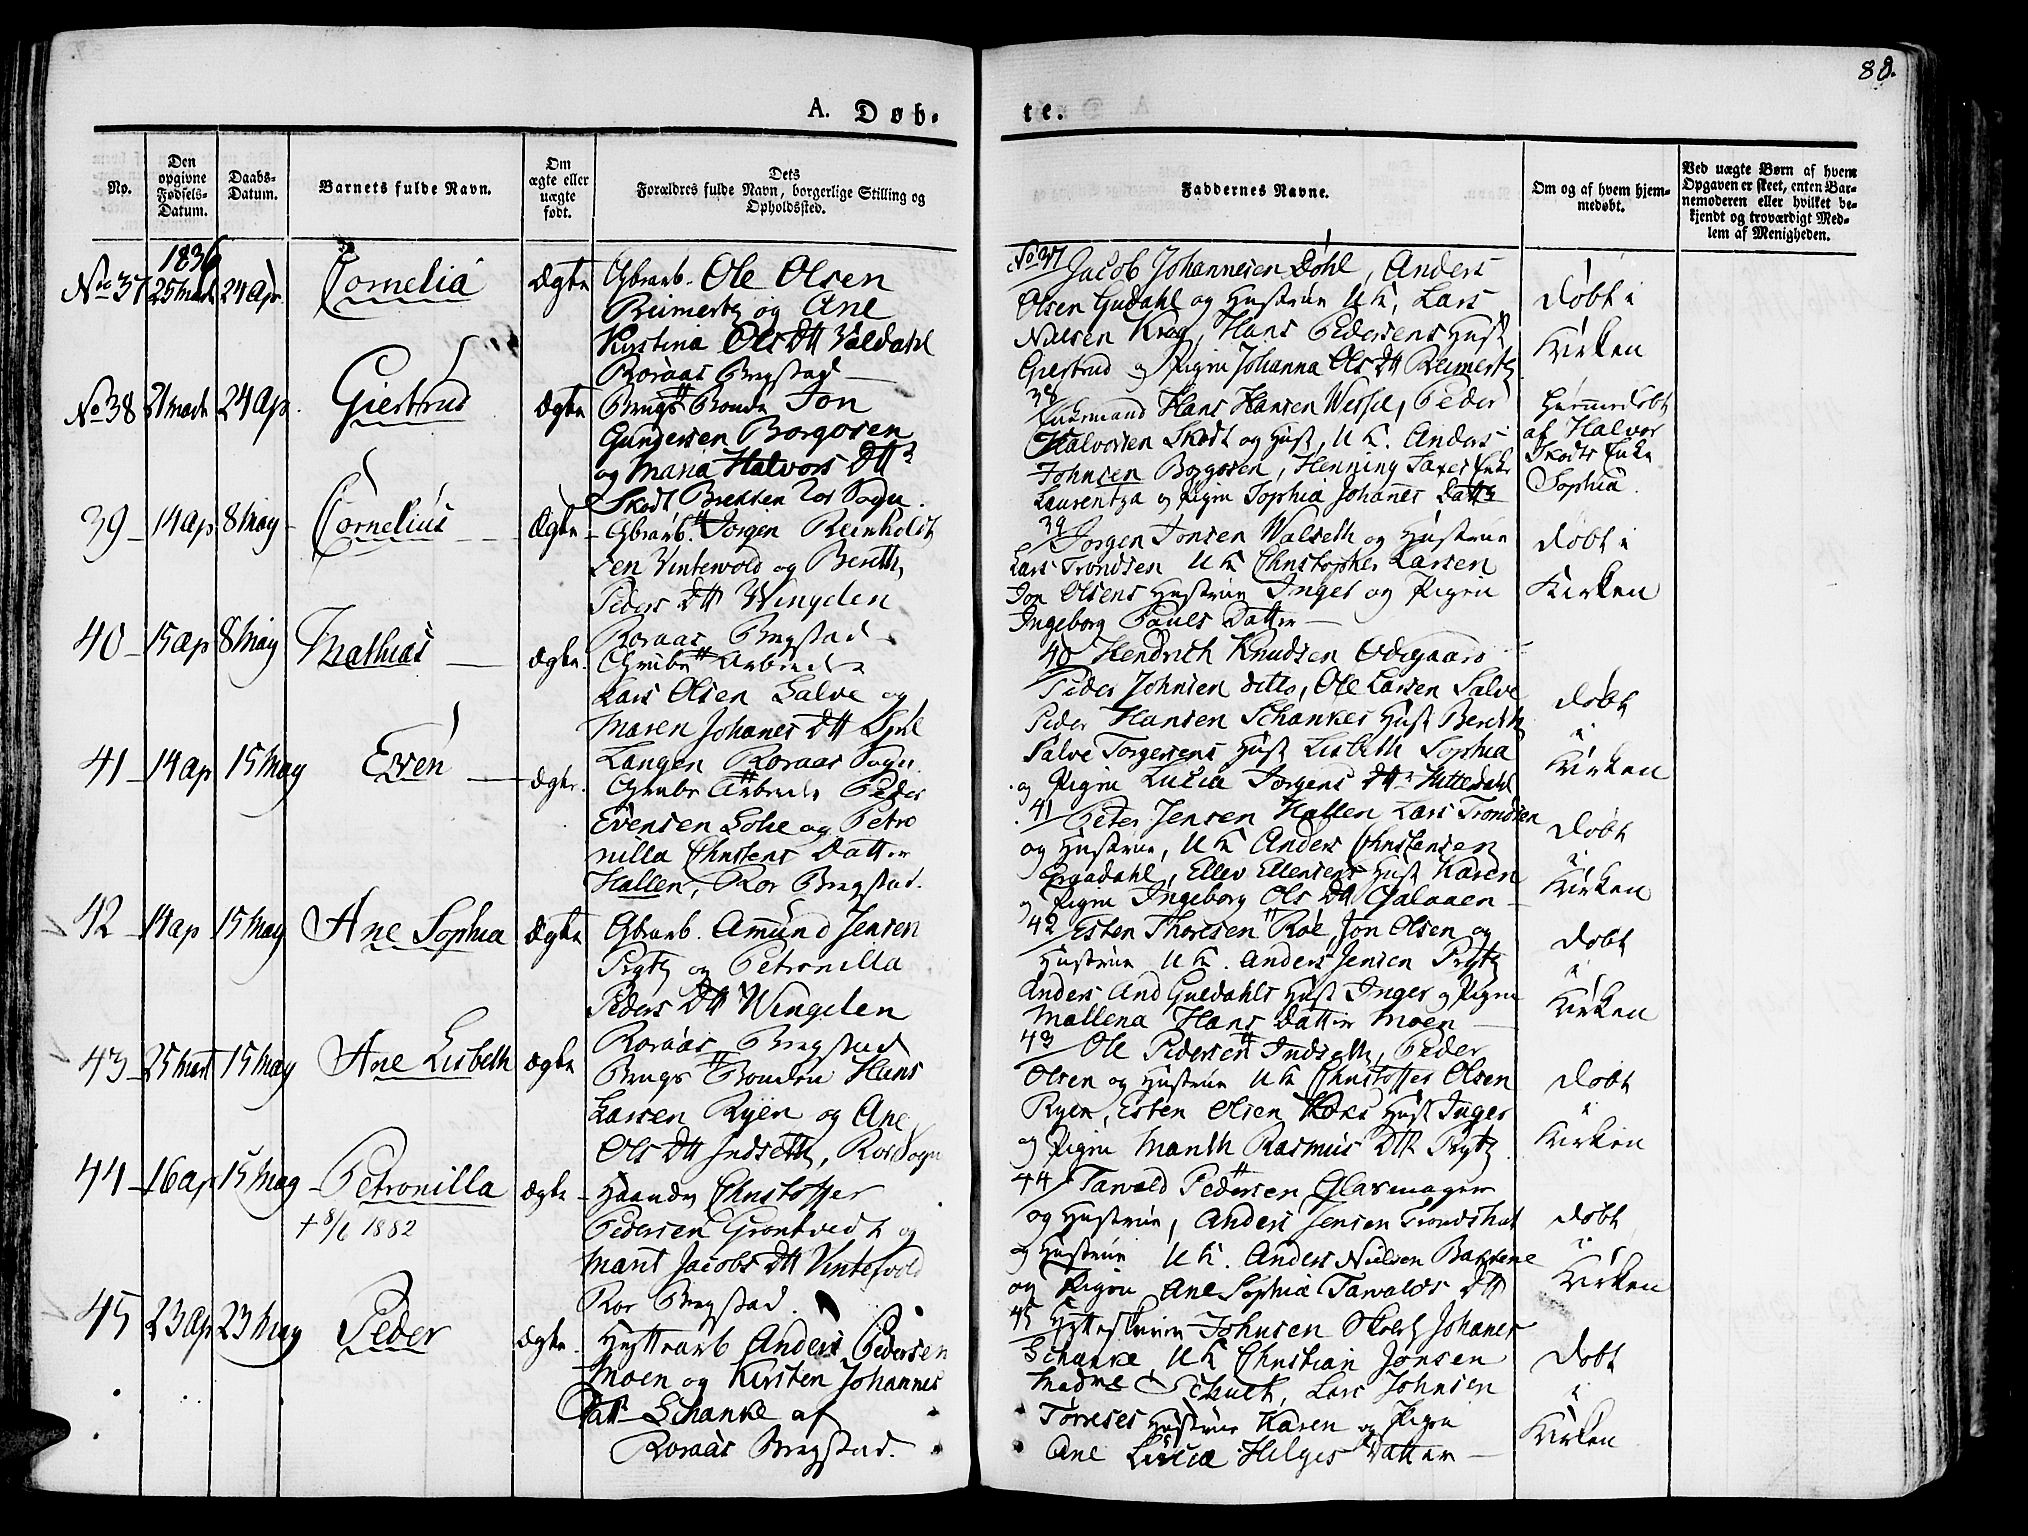 88.
A. Døb-
te.
No.
Den opgivne Fødsels-Datum.
Daabs-Datum.
Barnets fulde Navn.
Om ægte eller uægte født.
Dets Forældres fulde Navn, borgerlige Stilling og Opholdssted.
Faddernes Navne.
Om og af hvem hjemmedøbt.
Ved uægte Børn af hvem Opgaven er skeet, enten Barnemoderen eller hvilket bekjendt og troværdigt Medlem af Menigheden.
1836
No 37 25 Marts 24 Ap. Cornelia Ægte Gbrarb. Ole Olsen
Reimertz og Ane
Kirstina Ols Dtt Valdahl
Roraas Bergstad
No 38 21 Marts 24 Ap. Giertrud Ægte Brugs Bonde Jon
Gundersen Borgosen
og Maria Halvors Dtt
Skodt Bredsen Ror Sogn.
39 14 ap 8 May Cornelius Ægte Gbrarb. Jorgen Reinholdt
sen Vintervold og Berith
Peders Dtt Wingelen
Roraas Bergstad
40 15 ap 8 May Mathias Ægte. Grube Arbeider
Lars Olsen Salve og
Maren Johanes Dtt
Langen Roraas Sogn.
41 14 ap 15 May Even Ægte. Grube Arbeider Peder
Evensen Lohe og Petro
nilla Christens Datter
Hallen, Ror Bergstad.
42 14 ap 15 May Ane Sophia Ægte Gbrarb. Amund Jensen
Prytz og Petronilla
Peders Dtt Wingelen
Roraas Bergstad
43 25 Mart 15 May Ane Lisbeth Ægte Brugs Bonden Hans
Larsen Ryen og Ane
Ols Dtt Indseth, Ror Sogn
44 16 ap 15 May Petronilla Ægte Haandv Christoffer
† 8/6 1882
Pedersen Grontvedt og
Marit Jacobs Dtt Vintervold
Ror Bergstad.
45 23 Ap 23 May Peder Ægte. Hyttearb Anders Pedersen
Moen og Kirsten Johannes
Datt Schanke af
Roraas Bergstad.
No 37 Jacob Johannesen Døhl, Anders
Olsen Guldahl og Hustrue U K, Lars
Nielsen Krog, Hans Pedersens Hust
Giertrud og Pigen Johanna Ols Dtt Reimertz
Døbt i
Kirken
38 Enkemand Hans Hansen Wessel, Peder
Halvorsen Skodt og Hust, U K. Anders
Johnsen Borgosen, Henning Enke
Laurentza og Pigen Sophia Johanes Datt
Hiemmedøbt
af Halvor
Skodts Enke
Sophia.
39 Jorgen Jonsen Walseth og Hustrue
Lars Trondsen U K Christopher Larsen
Jon Olsens Hustrue Inger og Pigen
Ingeborg Pauls Datter
Døbt i
Kirken
40 Hendrich Knudsen Odegaard
Peder Johnsen ditto, Ole Larsen Salve
Peder Hansen Schankes Hust Berith
Salve Torgersens Hust Lisbeth Sophia
og Pigen Lucia Jorgens Dtt Hitterdahl
Døbt
i
Kirken
41 Peter Jensen Hallen Lars Trondsen
og Hustrue, U K Anders Christensen
Engadahl, Ellev Ellensens Hust Karen
og Pigen Ingeborg Ols Dtt Galaaen
Døbt
i
Kirken
42 Esten Thoresen Roe, Jon Olsen og
Hustrue U K. Anders Jensen Prytz
Anders And Guldahls Hust Inger og Pigen
Mallena Hans Datter Moen
Døbt
i
Kirken
43 Ole Pedersen Indseth, Peder
Olsen og Hustrue U K Christoffer Olsen
Ryen, Esten Olsen Hust Inger
og Pigen Marith Rasmus Dtt Prytz
Døbt
i
Kirken
44 Tarvald Pedersen Glasmager
og Hustrue, Anders Jensen Trondshat
og Hustrue U K. Anders Nielsen Bakkene
og Pigen Ane Sophia Tarvalds Dtt
Døbt
i
Kirken
45 Hytteskriver Johnsen Johanes
Schanke, U K Christian Jonsen
Madme Schult, Lars Johnsen
Torreses Hustrue Karen og Pigen
Ane Lucia Helges Datter
Døbt
i
Kirken